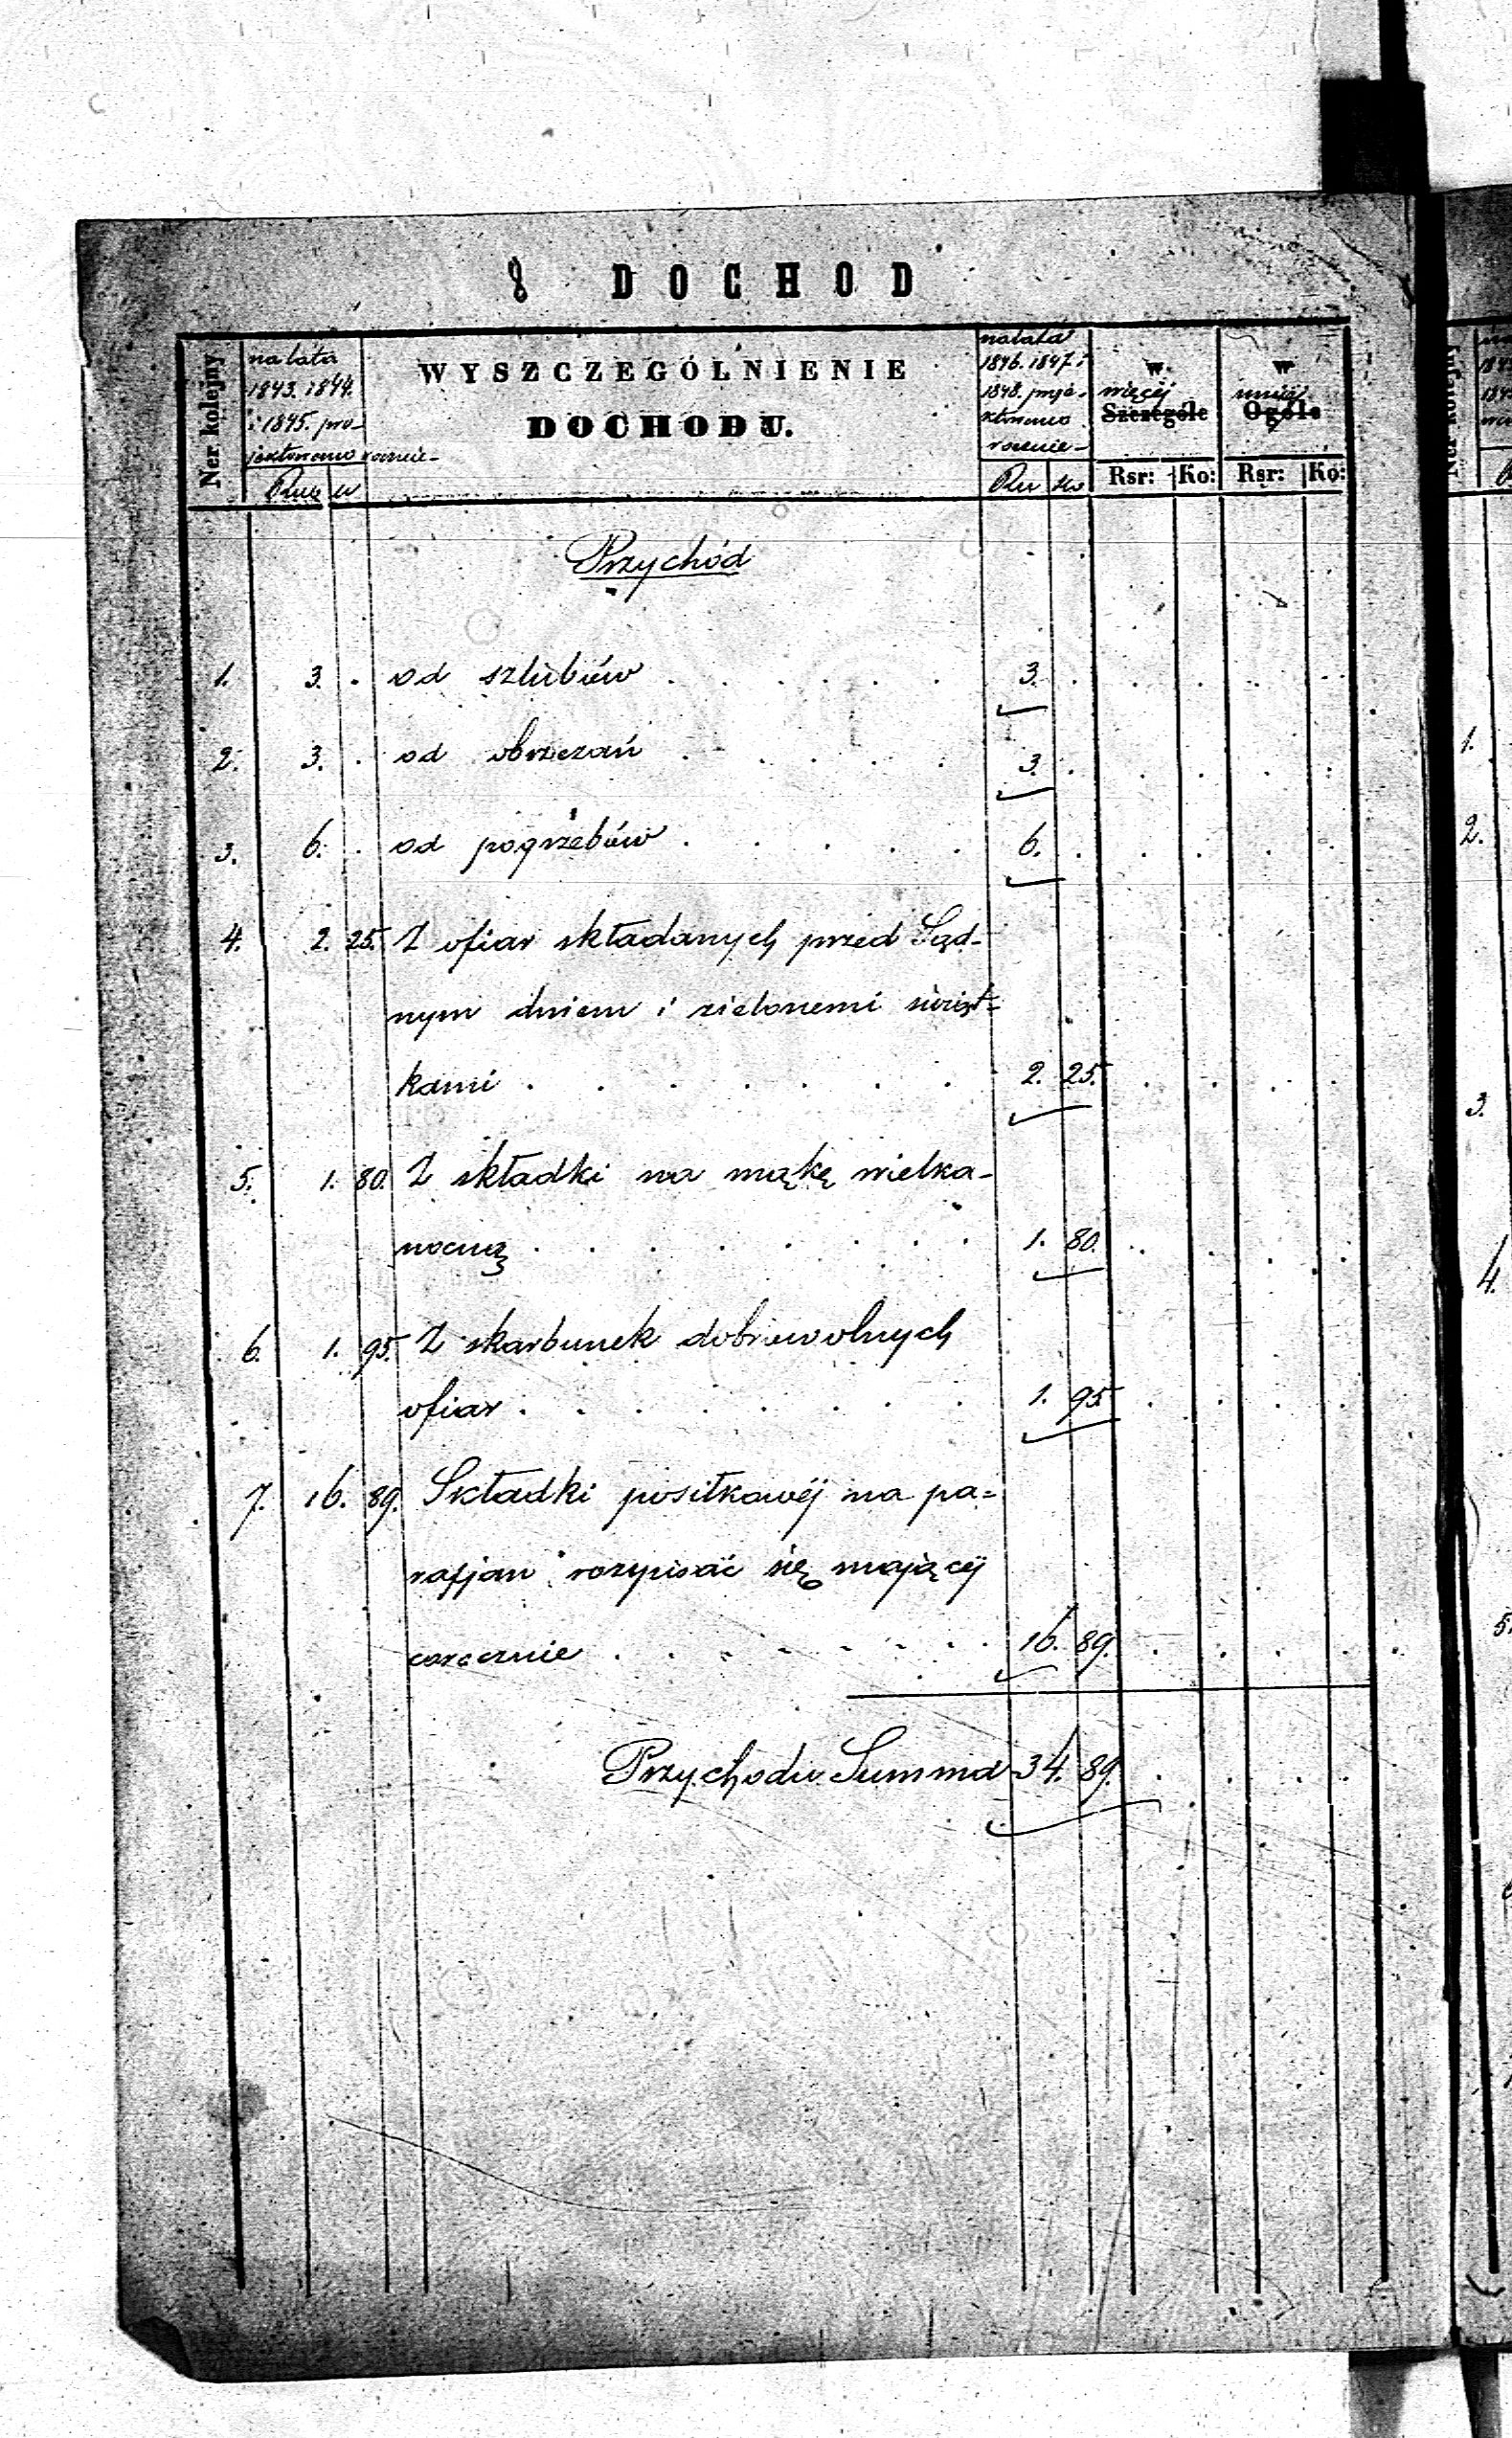 8 DOCHOD
Ner kolejny
na lata
1843. 1844.
i 1845. pro-
jektowano rocznie-
WYSZCZEGÓLNIENIE
DOCHODU.
na lata
1846. 1847. i
1848. proje-
ktowano
rocznie-
w
więcej
Szczególe
w
mniéj
Ogóle
Rsr: Ko: Rsr: Ko:
Przychód
1. 3. od szlubów 3.
2. 3. od obrzezań 3.
3. 6. od pogrzebów 6.
4. 2. 25. Z ofiar składanych przed Sąd-
nym dniem i zielonemi świąt-
kami 2. 25.
5. 1. 80. Z składki na mąkę wielka-
nocną 1. 80.
6. 1. 95. Z skarbunek dobrowolnych
ofiar 1. 95.
7. 16. 89. Składki posiłkowéj na pa-
rafjan rozpisać się mającéj
corocznie 16. 89.
Przychodu Summa 34. 89.
1.
2.
3.
4.